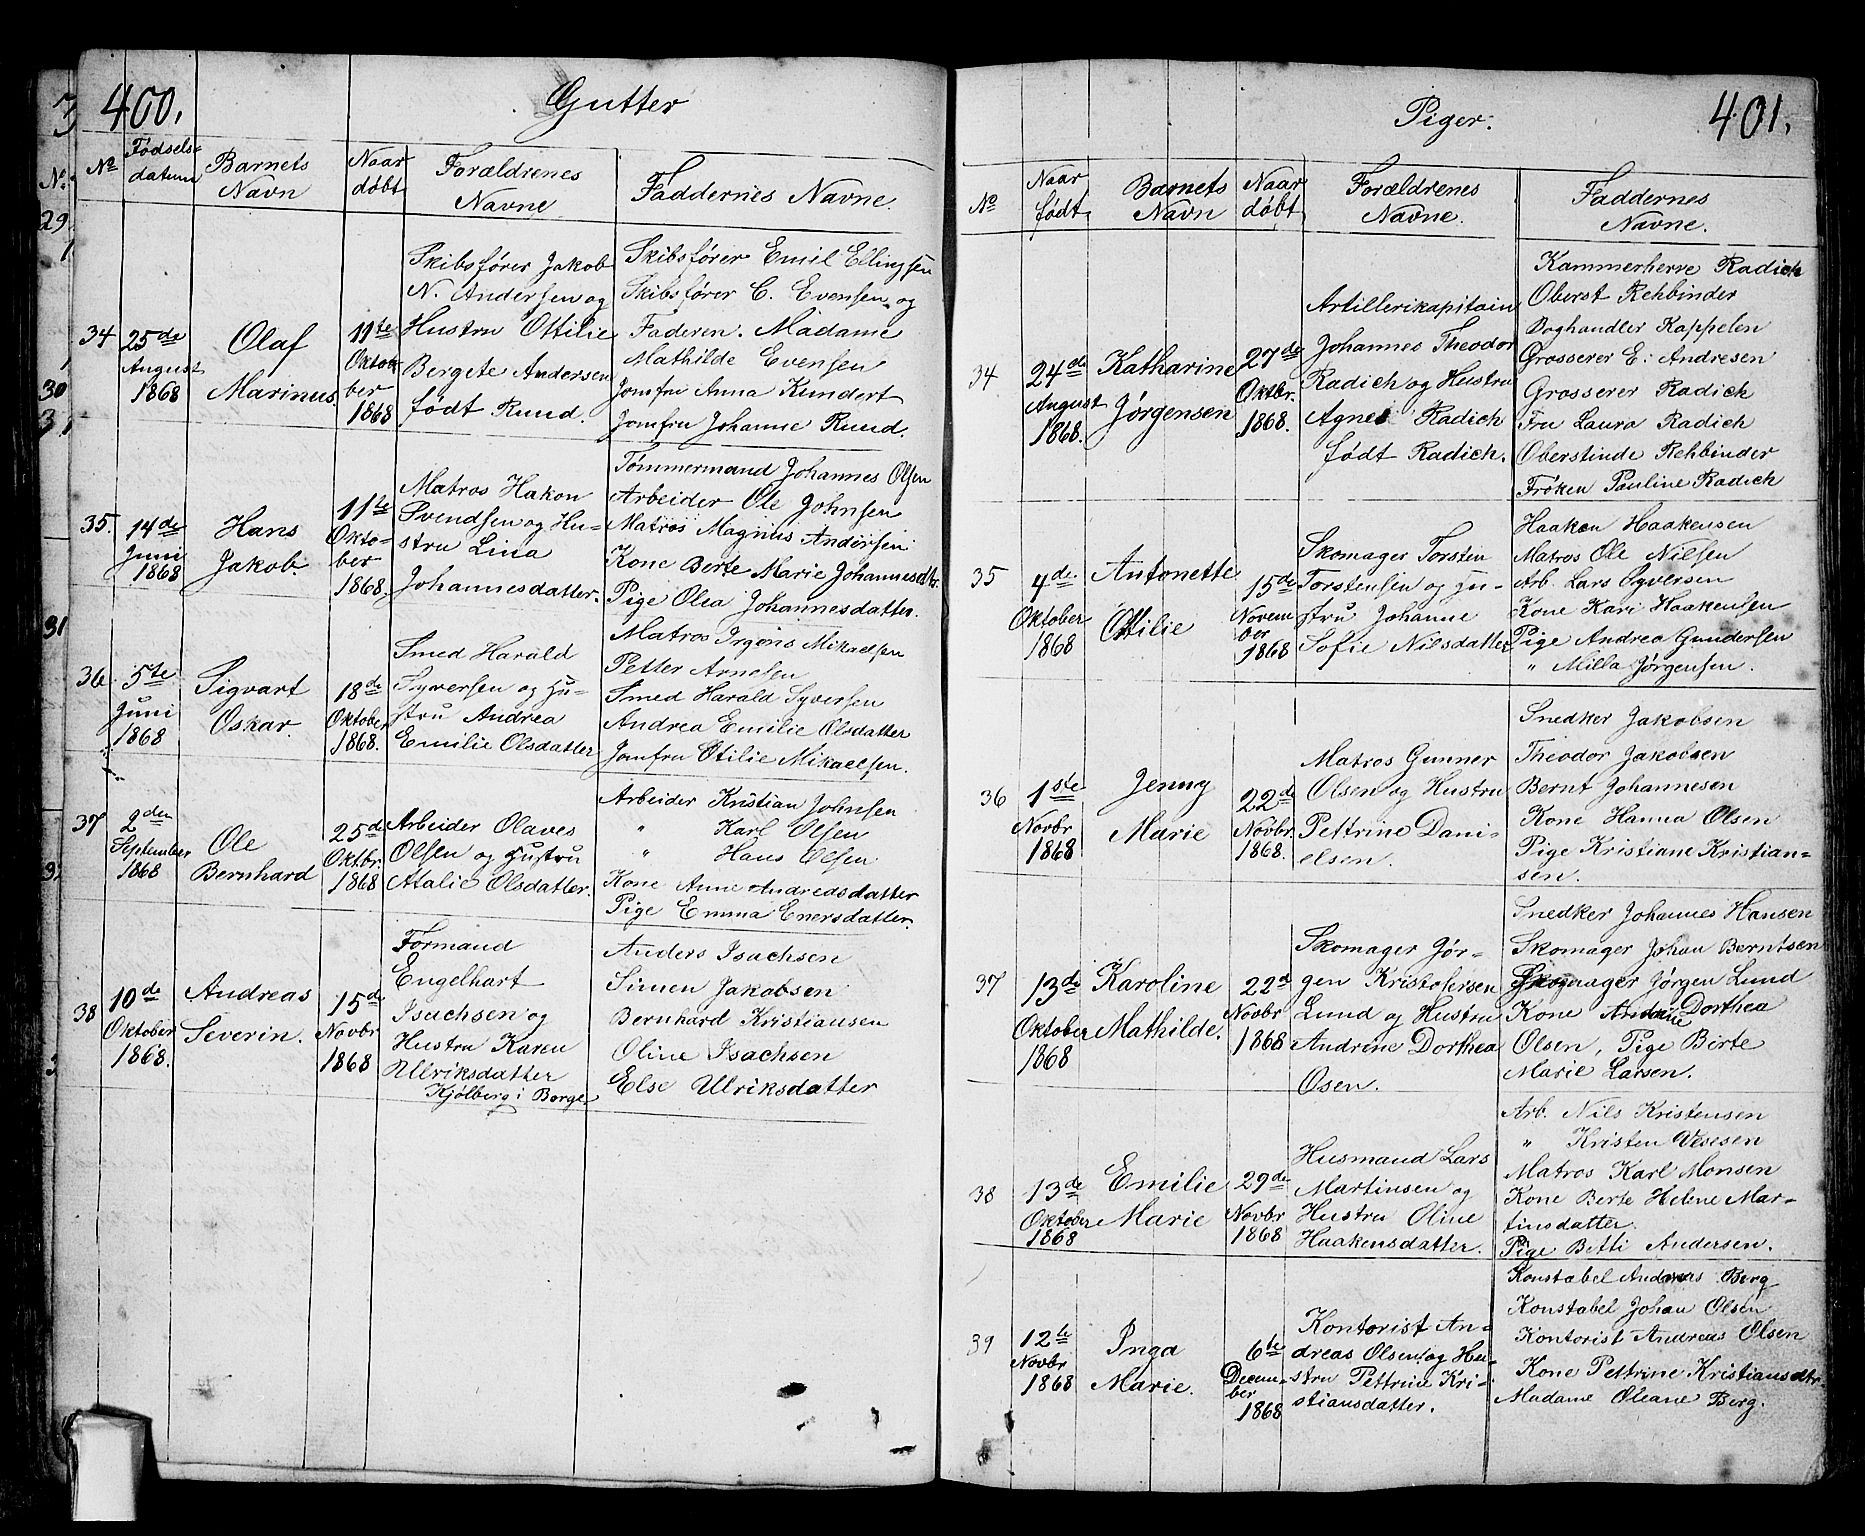 400.
Gutter
No
Fødsels-
datum
Barnets
Navn
Naar
døbt
Forældrenes
Navne
Faddernes Navne.
34
25de
August
1868
Olaf
Marinus.
11te
Oktober
1868
Skibsfører Jakob
N. Andersen og
Hustru Ottilie
Bergete Andersen
født Ruud.
Skibsfører Emil Ellingsen
Skibsfører C. Evensen og
Faderen. Madame
Mathilde Evensen
Jomfru Anna Kundert
Jomfru Johanne Ruud.
35.
14de
Juni
1868
Hans
Jakob.
11te
Okto-
ber
1868.
Matros Hakon
Svendsen og Hu-
stru Lina
Johannesdatter.
Tømmermand Johannes Olsen
Arbeider Ole Johnsen
Matros Magnus Andersen
Kone Berte Marie Johannesdtr.
Pige Olea Johannesdatter.
36
5te
Juni
1868
Sigvart
Oskar.
18de
Oktober
1868.
Smed Harald
Syversen og Hu-
stru Andrea
Emilie Olsdatter
Matros Irgens Mikaelsen
Petter Arnesen
Smed Harald Syversen
Andrea Emilie Olsdatter
Jomfru Otilie Mikaelsen.
37
2den
September
1868
Ole
Bernhard
25de
Oktbr.
1868
Arbeider Olaves
Olsen og Hustru
Atalie Olsdatter.
Arbeider Kristian Johnsen
" Karl Olsen
" Hans Olsen
Kone Anne Andreasdatter
Pige Emma Enersdatter.
38
10de
Oktober
1868.
Andreas
Severin.
15de
Novbr
1868
Formand
Engelhart
Isachsen og
Hustru Karen
Ulriksdatter
Kjølberg i Borge
Anders Isachsen
Simen Jakobsen
Bernhard Kristiansen
Oline Isachsen
Else Ulriksdatter
Piger.
401.
No
Naar
født
Barnets
Navn
Naar
døbt
Forældrenes
Navne.
Faddernes
Navne.
34
24de
August
1868.
Katharine
Jørgensen
27de
Oktbr.
1868.
Artillerikapitain
Johannes Theodor
Radich og Hustru
Agnes Radich
født Radich.
Kammerherre Radich
Oberst Rehbinder
Boghandler Kappelen
Grosserer E. Andresen
Grosserer Radich
Fru Laura Radich
Oberstinde Rehbinder
Frøken Pauline Radich
35
4de
Oktober
1868
Antonette
Ottilie
15de
Novem
ber
1868
Skomager Torsten
Torstensen og Hu-
stru Johanne
Sofie Nilsdatter
Haaken Haakensen
Matros Ole Nilsen
Arb. Lars Syversen
Kone Kari Haakensen
Pige Andrea Gundersen
" Milla Jørgensen.
36
1ste
Novbr
1868
Jenny
Marie
22de
Novbr.
1868.
Matros Gunner
Olsen og Hustru
Pettrine Dani-
elsen.
Snedker Jakobsen
Theodor Jakobsen
Bernt Johannesen
Kone Hanna Olsen
Pige Kristiane Kristian-
sen.
37
13de
Oktober
1868
Karoline
Mathilde.
22d
Novbr
1868
Skomager Jør-
gen Kristofersen
Lund og Hustru
Andrine Dorthea
Osen.
Snedker Johannes Hansen
Skomager Johan Berntsen
Skomager Jørgen Lund
Kone Andrine Dorthea
Olsen, Pige Børte
Marie Larsen.
38
13de
Oktober
1868
Emilie
Marie
29de
Novbr
1868
Husmand Lars
Martinsen og
Hustru Oline
Haakensdatter.
Arb. Nils Kristensen
" Kristen Vesesen
Matros Karl Monsen
Kone Berte Helene Mar-
tinsdatter.
Pige Betti Andersen.
39
12te
Novbr
1868
Inga
Marie.
6te
Decem-
ber
1868
Kontorist An-
dreas Olsen og Hu-
stru Pettrine Kri-
stiansdatter.
Konstabel Andreas Berg
Konstabel Johan Olsen
Kontorist Andreas Olsen
Kone Pettrine Kristiansdtr.
Madame Oleane Berg.